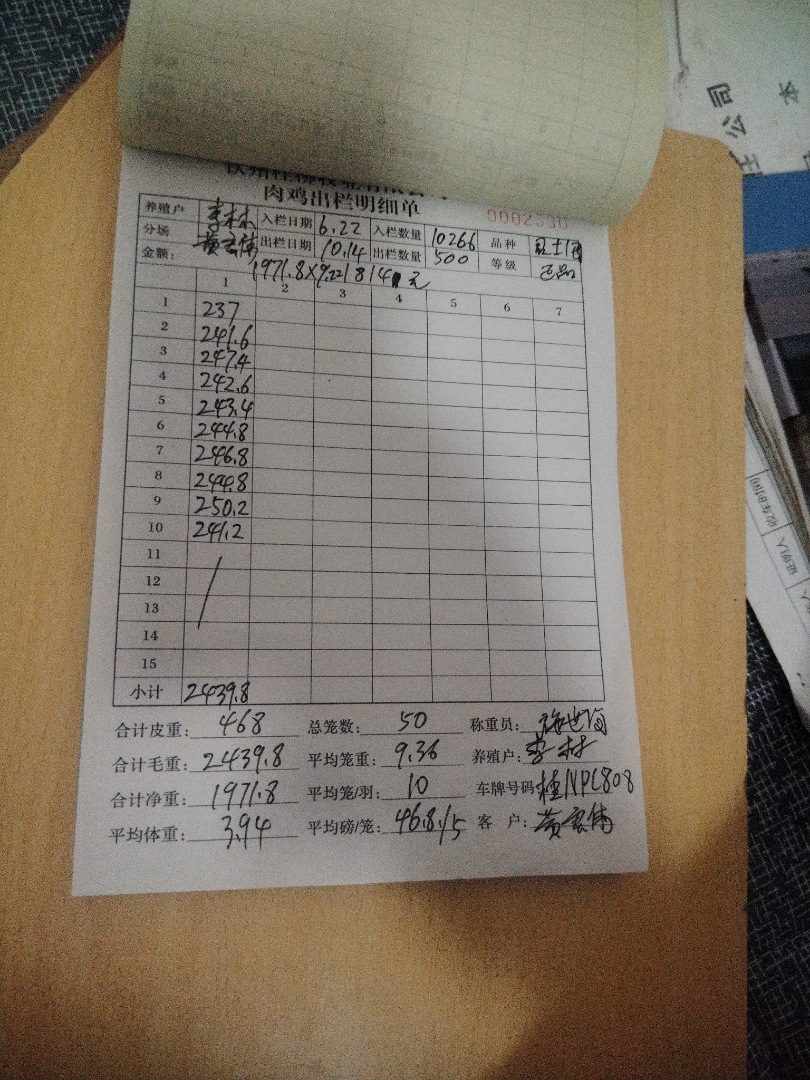 肉鸡出栏明细单
养殖户 李林 入栏日期 6.22 入栏数量 10266 品种
分场 黄宏伟 出栏日期 10.14 出栏数量 500 等级 正品
金额: 1971.8X9.2 元
1 2 3 4 5 6 7
1 237
2 241.6
3 247.4
4 242.6
5 243.4
6 244.8
7 246.8
8 244.8
9 250.2
10 241.2
11
12
13
14
15
小计 2439.8
合计皮重: 468 总笼数: 50 称重员:
合计毛重: 2439.8 平均笼重: 9.36 养殖户: 李林
合计净重: 1971.8 平均笼/羽: 10 车牌号码 桂NPC808
平均体重: 3.94 平均磅/笼: 46.8/5 客 户: 黄宏伟
公司
本